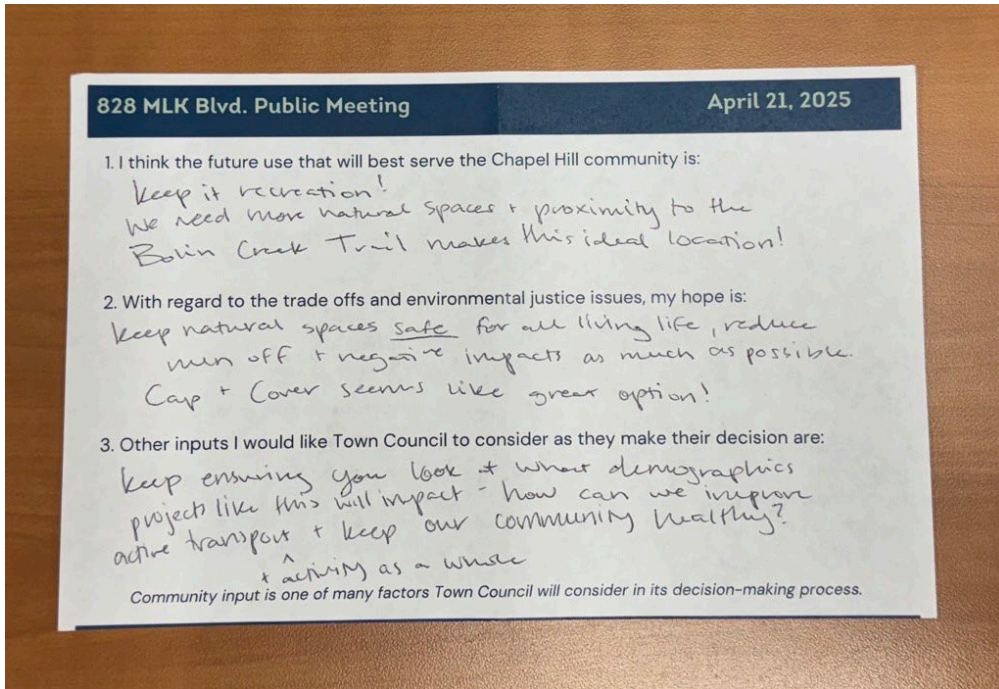 828 MLK Blvd. Public Meeting April 21, 2025
1. I think the future use that will best serve the Chapel Hill community is:
keep it recreation!
We need more natural spaces + proximity to the
Bolin Creek Trail makes this ideal location!
2. With regard to the trade offs and environmental justice issues, my hope is:
keep natural spaces safe for all living life, reduce
run off + negative impacts as much as possible.
Cap + Cover seems like great option!
3. Other inputs I would like Town Council to consider as they make their decision are:
keep ensuring you look at what demographics
projects like this will impact - how can we improve
active transport + keep our community healthy?
^
+ activity as a whole
Community input is one of many factors Town Council will consider in its decision-making process.